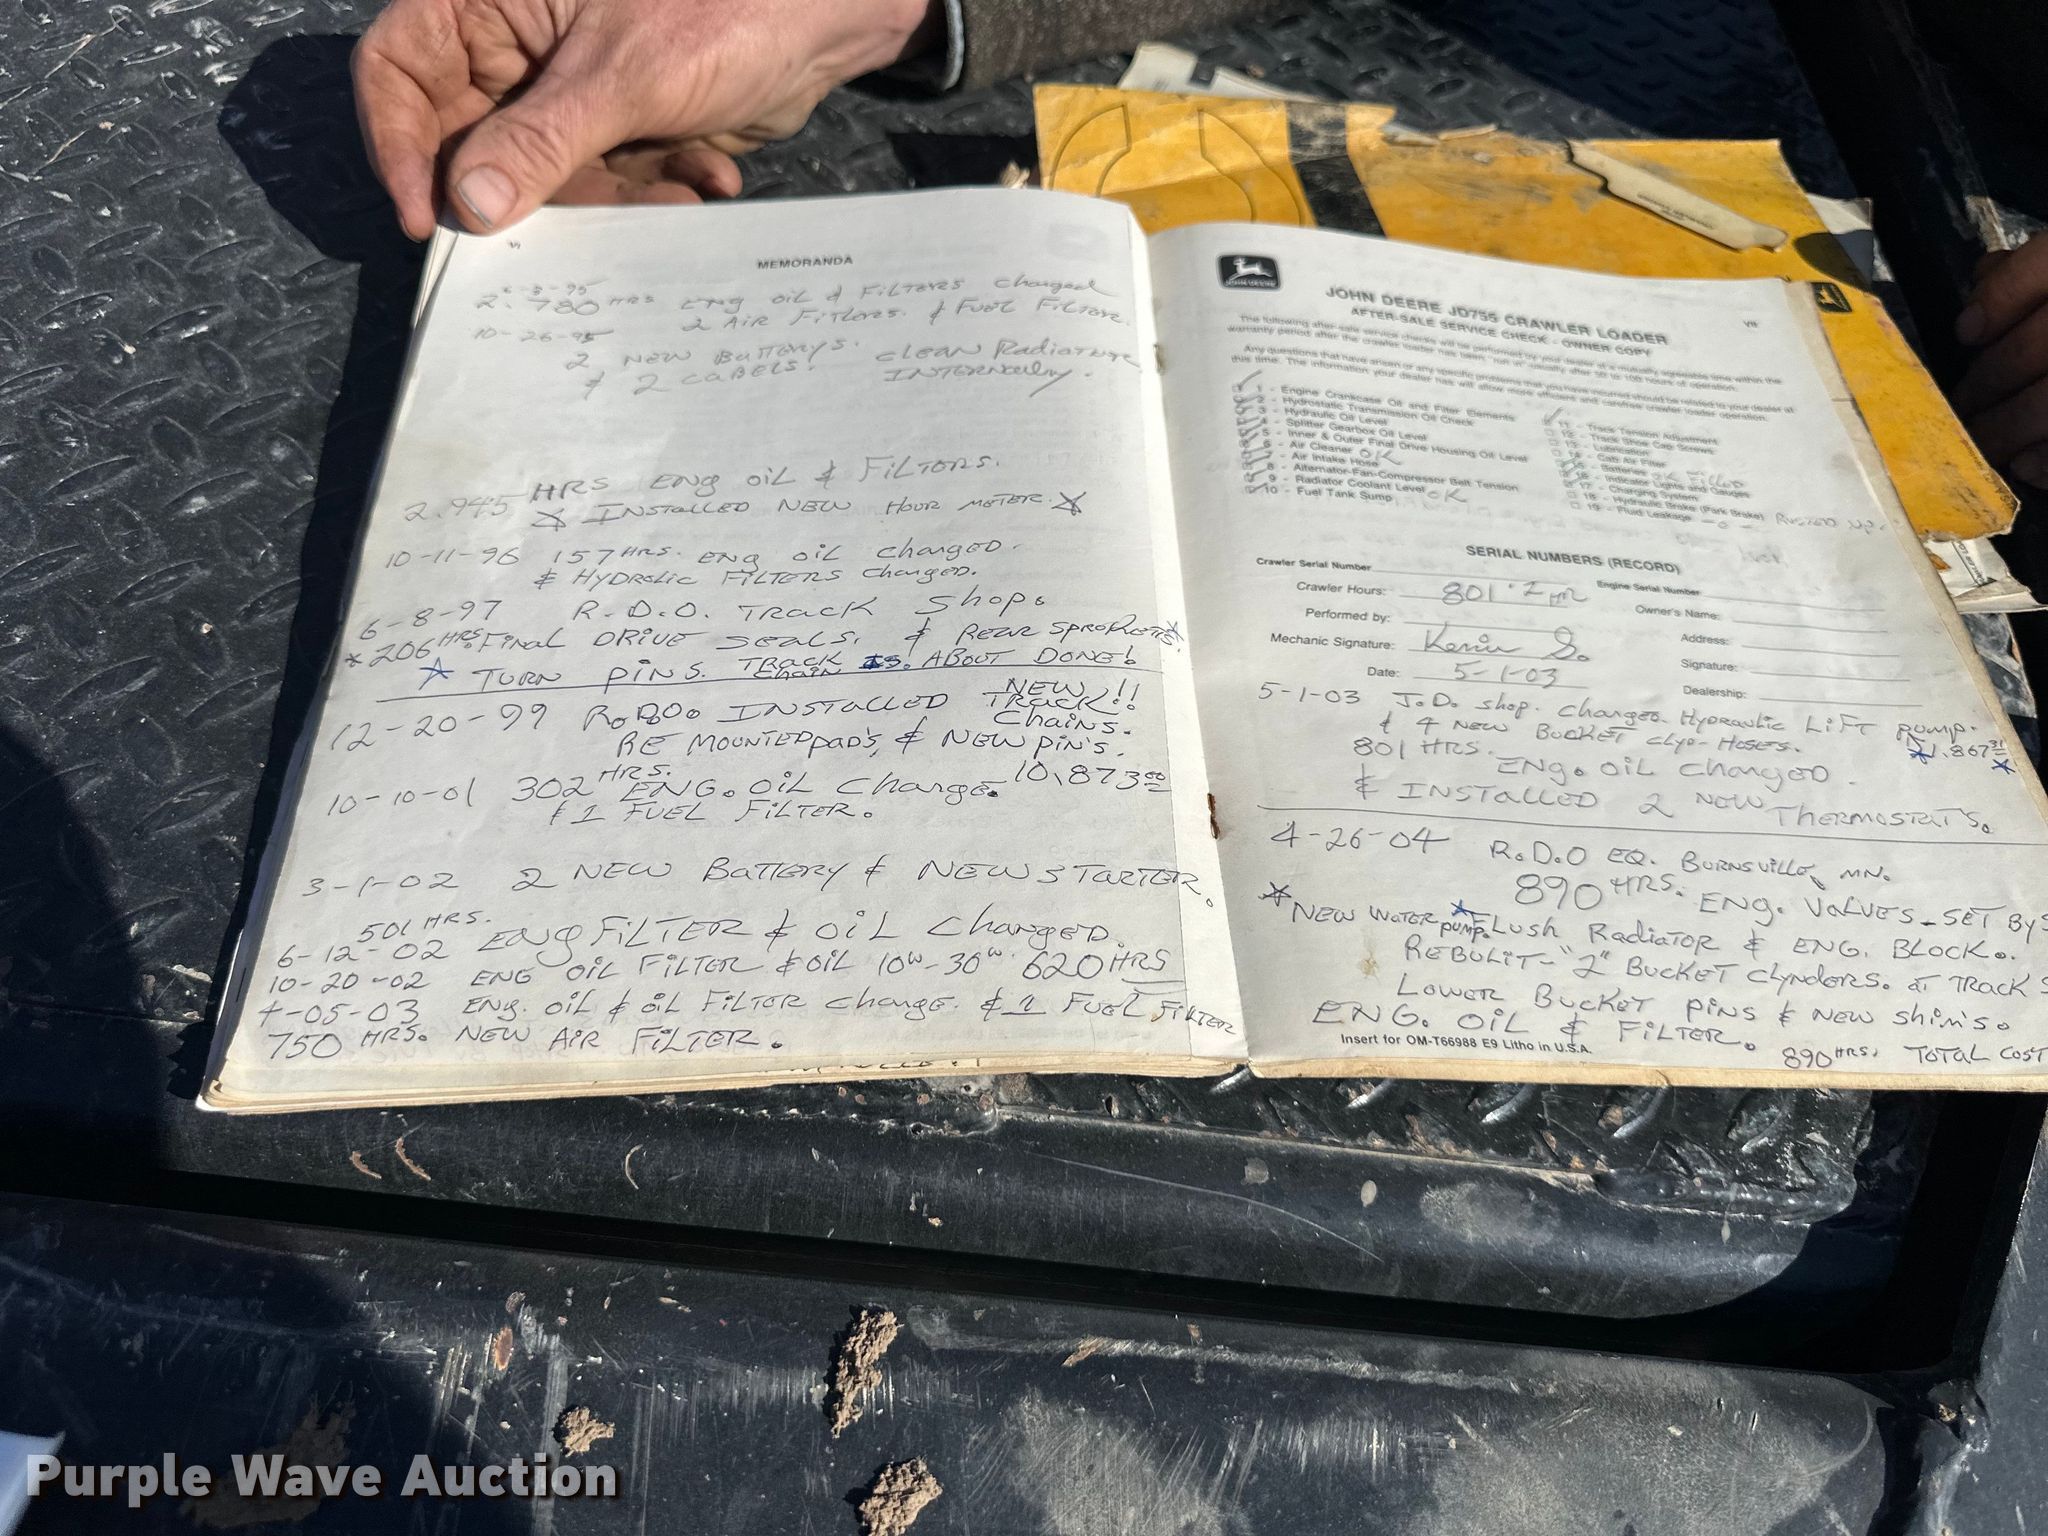 MEMORANDA
2.780 HRS ENg oil & FilTERS Changed
2 AiR FilTERS. & FuEl FilTER.
10-26-95
2 NEW BaTTERyS. clEAN RadiaTOR
& 2 CaBElS. INTERNally.
2.945 HRS ENg oil & FilTORS.
INSTALLED NEW HOUR METER.
10-11-96 157 HRS. ENg oil Changed.
& HyDRolic FilTERS Changed.
6-8-97 R.D.O. TRACK Shop.
* 206 HRS. Final DRIVE SEALS. & REAR
TURN PiNS. TRACK Chain is. ABOUT DONE!
12-20-99 R.D.O. INSTALLED NEW!! TRACK Chains.
RE MOUNTED pad's, & NEW pin's.
10,873.00
10-10-01 302 HRS. ENG. OiL ChaNgE.
& 1 FUEL FilTER.
3-1-02 2 NEW BaTTERy & NEW STARTER.
501 HRS.
6-12-02 ENg FilTER & OiL ChaNgED.
10-20-02 ENG OiL FilTER & OiL 10W-30W. 620 HRS
4-05-03 ENg. oil & oil FilTER change. & 1 FUEL FilTER
750 HRS. NEW AiR FilTER.
JOHN DEERE
VII
JOHN DEERE JD755 CRAWLER LOADER
AFTER-SALE SERVICE CHECK - OWNER COPY
The following after-sale service checks will be performed by your dealer at a mutually agreeable time within the
warranty period after the crawler loader has been "run in" usually after 50 to 100 hours of operation.
Any questions that have arisen or any specific problems that you have incurred should be related to your dealer at
this time. The information your dealer has will allow more efficient and carefree crawler loader operation.
1 - Engine Crankcase Oil and Filter Elements
2 - Hydrostatic Transmission Oil Check
3 - Hydraulic Oil Level
4 - Splitter Gearbox Oil Level
5 - Inner & Outer Final Drive Housing Oil Level
6 - Air Cleaner OK
7 - Air Intake Hose
8 - Alternator-Fan-Compressor Belt Tension
9 - Radiator Coolant Level OK
10 - Fuel Tank Sump
11 - Track Tension Adjustment
12 - Track Shoe Cap Screws
13 - Lubrication
14 - Cab Air Filter
15 - Batteries OK Filled
16 - Indicator Lights and Gauges
17 - Charging System
18 - Hydraulic Brake (Park Brake) RUSTED UP.
19 - Fluid Leakage
SERIAL NUMBERS (RECORD)
Crawler Serial Number
Engine Serial Number
Crawler Hours: 801.2 HR
Owner's Name:
Performed by:
Address:
Mechanic Signature: Kevin
Signature:
Date: 5-1-03
Dealership:
5-1-03 J.D. shop. changed HyDRaulic LiFT pump.
& 4 NEW BUCKET HosES. 1.867.31
801 HRS. ENg. oil ChaNgED.
& INSTALLED 2 NEW THERMOSTAT'S.
4-26-04 R.D.O EQ. BURNSVillE, MN.
890 HRS. ENg. VALVES-SET By
NEW WATER pump. Flush RadiaTOR & ENG. BLOCK.
REBULIT-"2" BUCKET ClyNDERS. at TRACK
LOWER BUCKET pins & NEW shim's.
ENG. OiL & FilTER.
Insert for OM-T66988 E9 Litho in U.S.A.
890 HRS. TOTAL COST
Purple Wave Auction